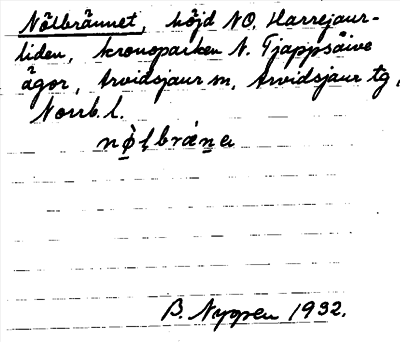 Nölbrännet, höjd NO. Harrejaur-
liden, kronoparken N. Tjappsäive
ägor, Arvidsjaur sn, Arvidsjaur tg,
Norrb. l.
B. Nygren 1932.